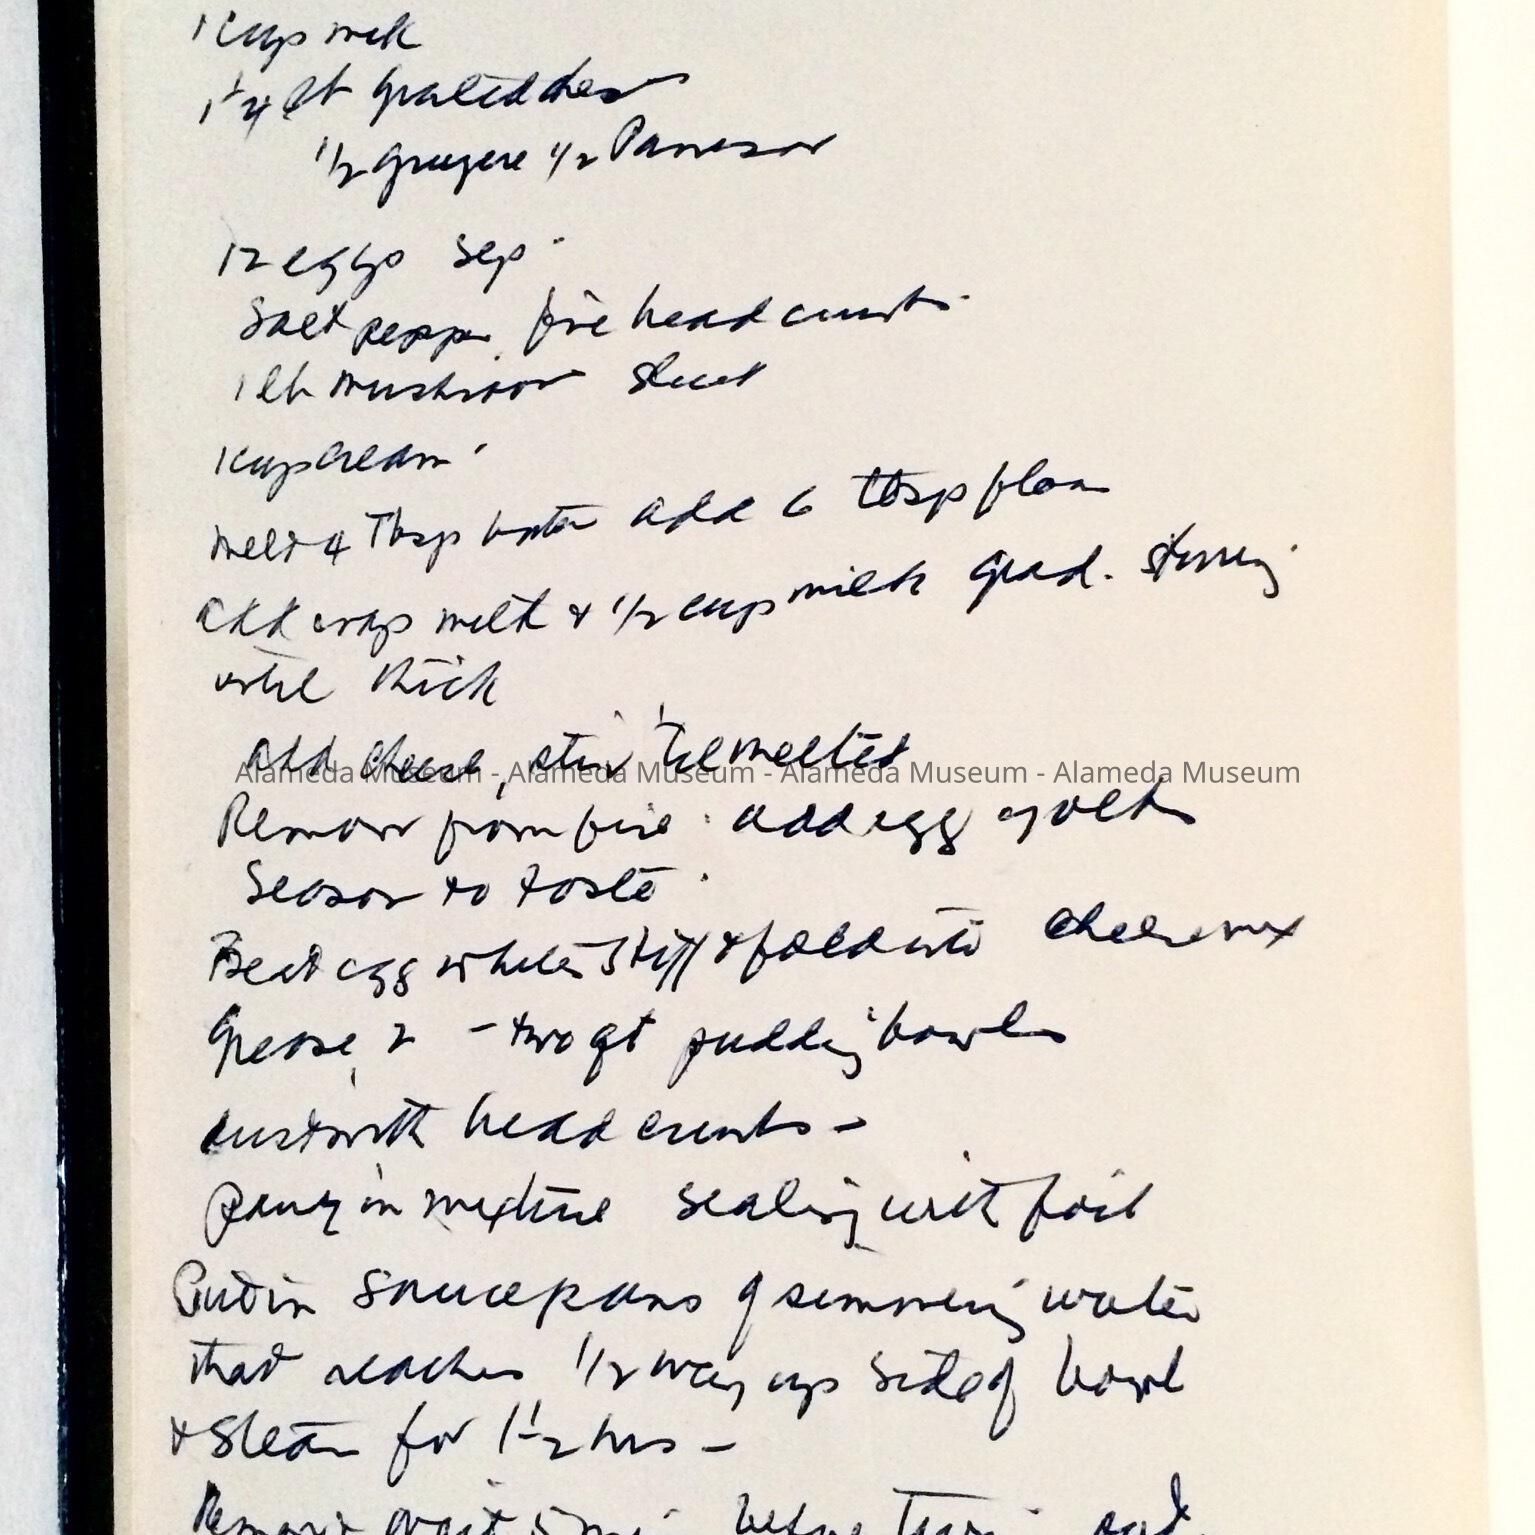 1 cup milk
1 1/4 lb grated cheese
1/2 gruyere 1/2 Parmesan
12 eggs sep.
Salt pepper, fine bread crumbs.
1 lb mushroom sliced
1 cup cream.
melt 4 Tbsp butter add 6 tbsp flour
add evap milk & 1/2 cup milk grad. stirring
until thick
Add cheese, stir 'til melted
Alameda Museum - Alameda Museum - Alameda Museum - Alameda Museum
Remove from fire. add egg yolks
Season to taste.
Beat egg whites stiff & fold into cheese mix
Grease, 2 - two qt pudding bowls
dust with bread crumbs -
pour in mixture sealing with foil
Put in saucepans of simmering water
that reaches 1/2 way up side of bowl
& Steam for 1 1/2 hrs -
Remove wait 5 min before turning out.